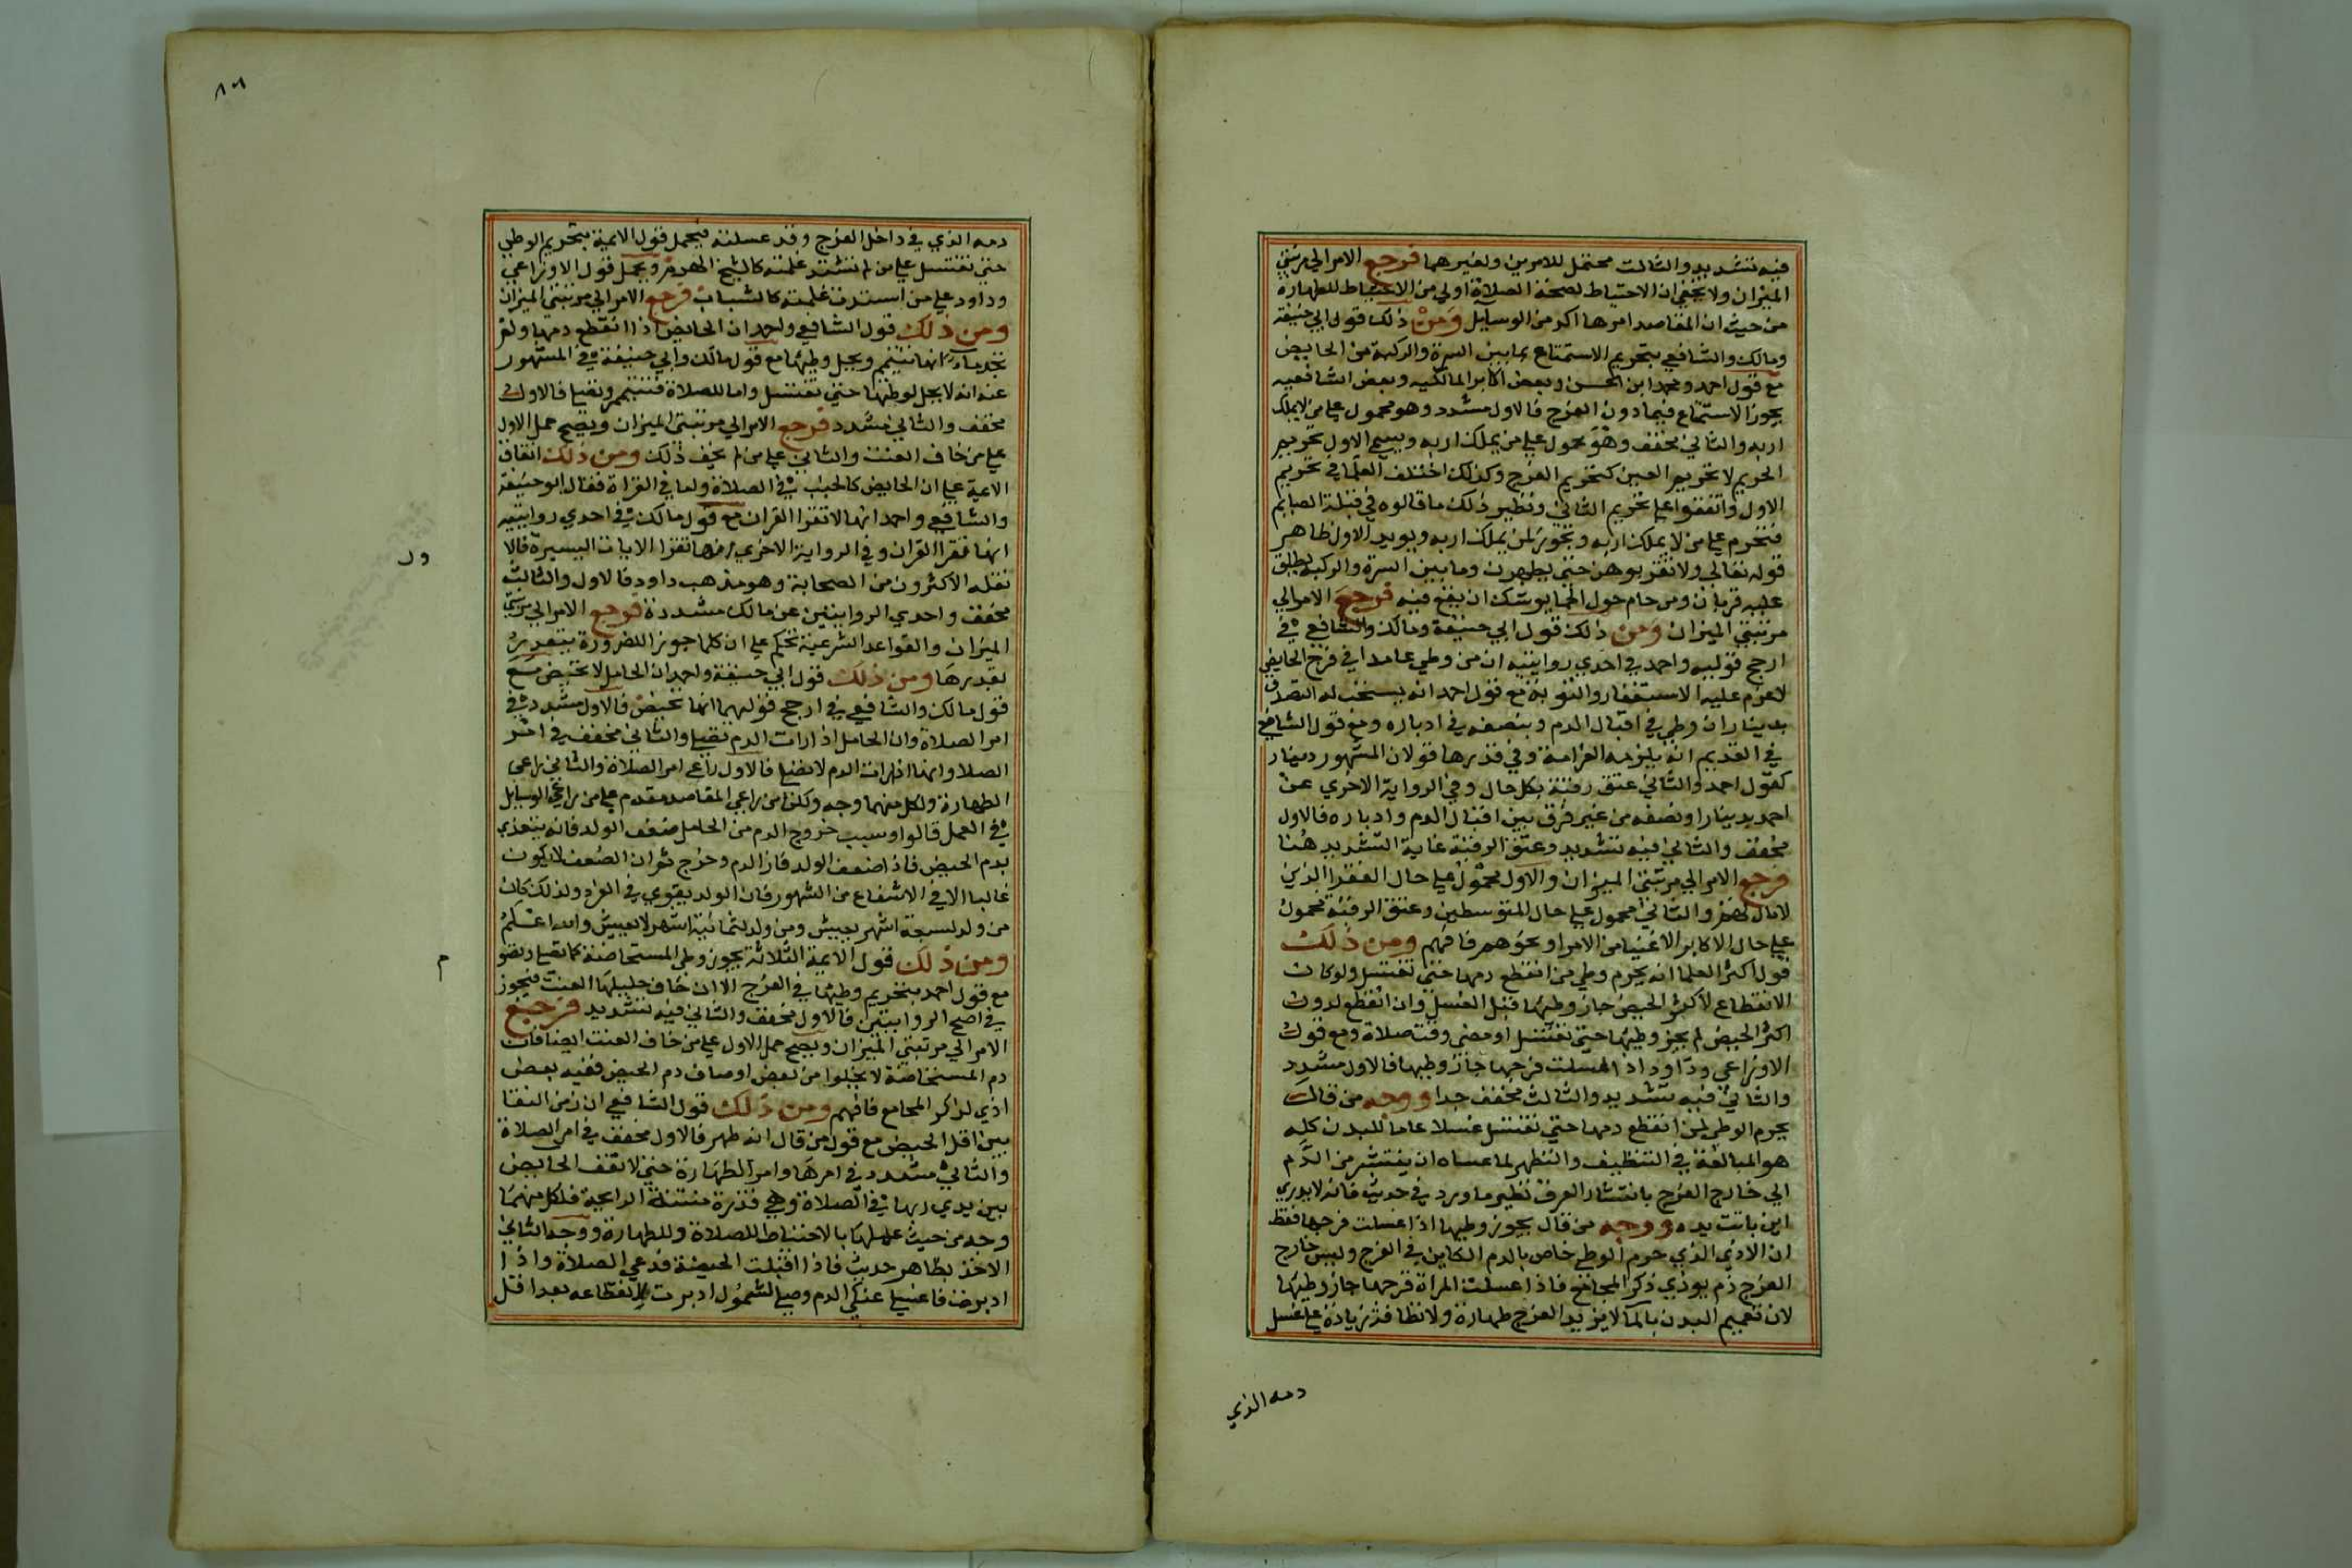 فيه تشديد والثالث محتمل للامرين ولغيرهما فرجع الامر الي مرتبتي
الميزان ولا يخفي ان الاحتياط لصحة الصلاة اولي من الاحتياط للطهارة
من حيث ان المقاصد امرها اكد من الوسايل ومن ذلك قول ابي حنيفة
ومالك والشافعي بتحريم الاستمتاع بما بين السرة والركبة من الحايض
مع قول احمد ومحمد ابن الحسن وبعض اكابر المالكيه وبعض الشافعيه
يجوز الاستمتاع فيما دون الفرج فالاول مشدد وهو محمول علي من لا يملك
اربه والثاني مخفف وهو محمول علي من يملك اربه ويسمي الاول تحريم
الحريم لا تحريم العين كتحريم الفرج وكذلك اختلف العلما في تحريم
الاول واتفقوا علي تحريم الثاني ونظير ذلك ما قالوه في قبلة الصايم
فتحرم علي من لا يملك اربه وتجوز لمن يملك اربه ويويد الاول ظاهر
قوله تعالي ولا تقربوهن حتي يطهرن وما بين السرة والركبة يطلق
عليه قربان ومن حام حول الحما يوشك ان يقع فيه فرجع الامر الي
مرتبتي الميزان ومن ذلك قول ابي حنيفة ومالك والشافعي في
ارجح قوليه واحمد في احدي روايتيه ان من وطي عامدا في فرج الحايض
لا غرم عليه الاستغفار والتوبة مع قول احمد انه يستحب له التصدق
بدينار ان وطي في اقبال الدم وبنصفه في ادباره ومع قول الشافعي
في القديم انه يلزمه الغرامة وفي قدرها قولان المشهور دينار
كقول احمد والثاني عتق رقبة بكل حال وفي الرواية الاخري عن
احمد بدينار او نصفه من غير فرق بين اقبال الدم وادباره فالاول
مخفف والثاني فيه تشديد وعتق الرقبة غاية التشديد هنا
فرجع الامر الي مرتبتي الميزان والاول محمول علي حال الفقرا الذين
لا مال لهم والثاني محمول علي حال المتوسطين وعتق الرقبة محمول
علي حال الاكابر الاغنيا من الامرا ونحوهم فافهم ومن ذلك
قول اكثر العلما انه يحرم وطي من انقطع دمها حتي تغتسل ولو كان
الانقطاع لاكثر الحيض جاز وطيها قبل الغسل وان انقطع لدون
اكثر الحيض لم يجز وطيها حتي تغتسل او مضي وقت صلاة ومع قول
الاوزاعي وداود اذا غسلت فرجها جاز وطيها فالاول مشدد
والثاني فيه تشديد والثالث مخفف جدا ووجه من قال
يحرم الوطي لمن انقطع دمها حتي تغتسل غسلا عاما للبدن كله
هو المبالغة في التنظيف والتطهر لما عساه ان ينتشر من الدم
الي خارج الفرج بانتشار العرق نظير ما ورد في حديث فانه لا يدري
اين باتت يده ووجه من قال يجوز وطيها اذا غسلت فرجها فقط
ان الاذي الذي حرم الوطي خاص بالدم الكاين في الفرج وليس خارج
الفرج دم يوذي ذكر المجامع فاذا غسلت المراة فرجها جاز وطيها
لان تعميم البدن بالما لا يزيد الفرج طهارة ولا نظافة زيادة علي غسل
دمه الذي
٨٦
دمه الذي في داخل الفرج وقد غسلته فيحمل قول الايمة بتحريم الوطي
حتي تغتسل علي من لم تشتد غلمته كالشيخ الهرم ويحمل قول الاوزاعي
وداود علي من اشتدت غلمته كالشباب فرجع الامر الي مرتبتي الميزان
ومن ذلك قول الشافعي واحمد ان الحايض اذا انقطع دمها ولم
تجد ماء انها تتيمم ويحل وطيها مع قول مالك وابي حنيفة في المشهور
عنه انه لا يحل وطيها حتي تغتسل واما للصلاة فتتيمم وتصلي فالاول
مخفف والثاني مشدد فرجع الامر الي مرتبتي الميزان ويصح حمل الاول
علي من خاف العنت والثاني علي من لم يخف ذلك ومن ذلك اتفاق
الايمة علي ان الحايض كالجنب في الصلاة واما في القراة فقال ابو حنيفة
والشافعي واحمد انها لا تقرا القران مع قول مالك في احدي روايتيه
انها تقرا القران وفي الرواية الاخري انها تقرا الايات اليسيرة فالا
ول
نقله الاكثرون من الصحابة وهو مذهب داود فالاول والثالث
مخفف واحدي الروايتين عن مالك مشددة فرجع الامر الي مرتبتي
الميزان والقواعد الشرعية تحكم علي ان كلما جوز للضرورة يتقدر
بقدرها ومن ذلك قول ابي حنيفة واحمد ان الحامل لا تحيض مع
قول مالك والشافعي في ارجح قوليهما انها تحيض فالاول مشدد في
امر الصلاة وان الحامل اذا رات الدم تصلي والثاني مخفف في امر
الصلا وانها اذا رات الدم لا تصلي فالاول راعي امر الصلاة والثاني راعي
الطهارة ولكل منهما وجه ولكن من راعي المقاصد مقدم علي من راعي الوسايل
في العمل قالوا وسبب خروج الدم من الحامل ضعف الولد فانه يتغذي
بدم الحيض فاذا ضعف الولد فاز الدم وخرج ثم ان الضعف لا يكون
غالبا الا في الاشفاع من الشهور فان الولد يقوي في الفرد ولذلك كان
من ولد لسبعة اشهر يعيش ومن ولد لثمانية اشهر لا يعيش والله اعلم
ومن ذلك قول الايمة الثلاثة يجوز وطي المستحاضة كما تصلي وتصو
م
مع قول احمد بتحريم وطيها في الفرج الا ان خاف حليلها العنت فيجوز
في اصح الروايتين فالاول مخفف والثاني فيه تشديد فرجع
الامر الي مرتبتي الميزان ويصح حمل الاول علي من خاف العنت ايضا فان
دم المستحاضة لا يخلوا من بعض اوصاف دم الحيض ففيه بعض
اذي لذاكر المجامع فافهم ومن ذلك قول الشافعي ان زمن النقا
بين اقل الحيض مع قول من قال انه طهر فالاول مخفف في امر الصلاة
والثاني مشدد في امرها وامر الطهارة حتي لا تقف الحايض
بين يدي ربها في الصلاة وهي قذرة منتنة الرايحة فلكل منهما
وجه من حيث عملها بالاحتياط للصلاة وللطهارة ووجه الثاني
الاخذ بظاهر حديث فاذا اقبلت الحيضة فدعي الصلاة واذا
ادبرت فاغسلي عنك الدم وصلي لشمول ادبرت لانقطاعه بعد اقل